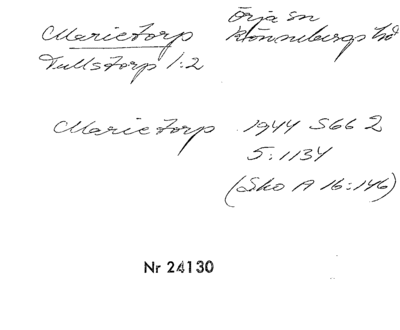 Marietorp Örja sn
Tullstorp 1:2 Rönnebergs hd
Marietorp 1944 S66 2
5:1134
(Sko A 16:146)
Nr 24130